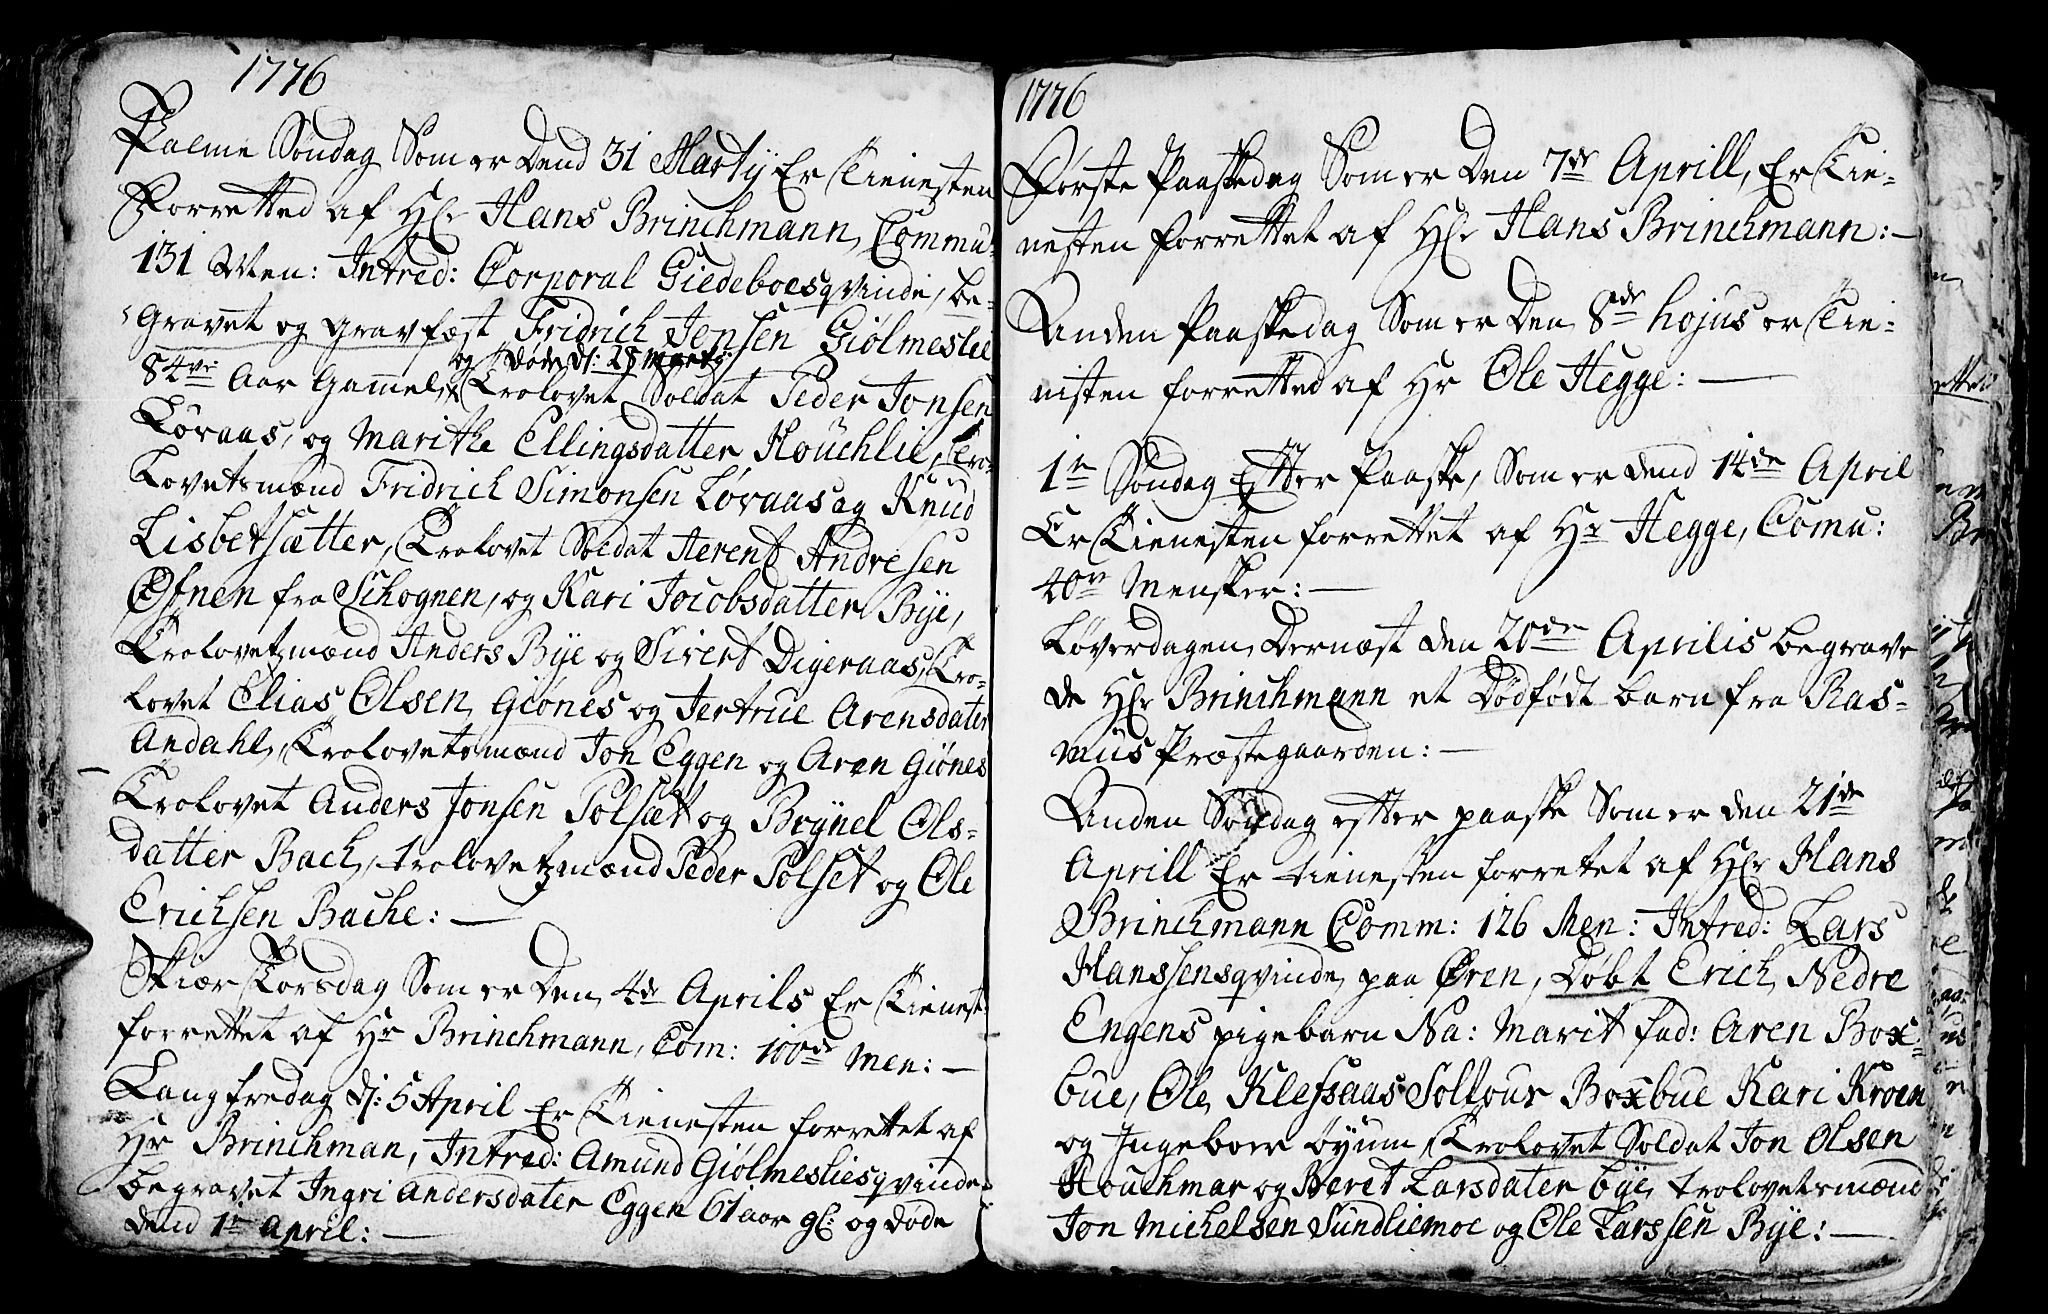 1776
Palme Søndag Som er Dend 31 Martij Er Tienesten
Forretted af Hr Hans Brinchmann, Commu:
131 Men: Introd: Corporal Giedeboes qvinde, be-
Gravet og gravfæst Fridrich Jensen Giölmeslie
og døde d: 28 Martij
84ve Aar Gammel, Trolovet Soldat Peder Jonsen
Løraas, og Marithe Ellingsdatter Houchlie, Tro-
Lovetsmænd Fridrich Simonsen Løraas og Knud
Lisbetsætter, Trolovet Soldat Aerent Andresen
Ofnen fra Schognen, og Kari Jocobsdatter Bye,
Trolovetzmænd Anders Bye og Sivert Digeraas, Tro-
lovet Elias Olsen Giönes og Jertrue Arensdater
Andahl, Trolovetsmænd Jon Eggen og Aren Giönes
Trolovet Anders Jonsen Solsæt og Brynel Ols-
datter Bach, trolovetzmænd Peder Solset og Ole
Erichsen Bache: —
Skiær Torsdag Som er Den 4de Aprils Er Tienest:
forrettet af Hr Brinchmann, Com: 100de Men: —
Langfredag d: 5 April Er Tienesten forrettet af
Hr Brinchman, Introd: Amund Giölmeslies qvinde
begravet Ingri Andersdater Eggen 61 aar gl: og døde
dend 1te April: —
1776
Første Paaskedag Som er Den 7de Aprill, Er Tie-
nesten forrettet af Hr Hans Brinchmann: —
Anden Paaskedag Som er Den 8de hojus er Tie-
nisten forretted af Hr Ole Hegge: —
1te Søndag Efter Paaske, Som er dend 14de April
Er Tienesten forrettet af Hr Hegge, Comu:
40ve Mensker: —
Løverdagen Dernæst den 20de Aprilis begrave
de Hr Brinchmann et Dødfødt barn fra Ras-
mus Præstegaarden: —
Anden Søndag efter paaske Som er den 21de
Aprill Er tienesten forrettet af Hr Hans
Brinchmann Comm: 126 Men: Introd: Lars
Hanssens qvinde paa Øren, Døbt Erich Nedre
Engens pigebarn Na: Marit fad: Aren Box-
bue, Ole Klefsaas Soltour Boxbue Kari Kroen
og Ingeborr öyum, Trolovet Soldat Jon Olsen
Houchmar og Beret Larsdater bye, trolovetsmænd
Jon Michelsen Sundliemoe og Ole Larssen Bye: —